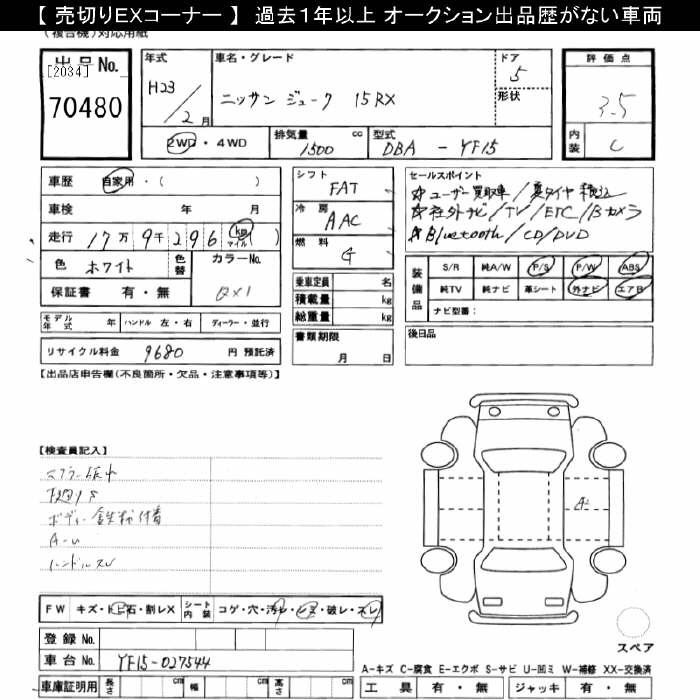 【 売切りEXコーナー 】 過去１年以上 オークション出品歴がない車両
(複合機)対応用紙
出品No.
[2034]
70480
年式
H23
2 月
車名・グレード
ニッサン ジューク 15RX
ドア
5
形状
評価点
3.5
内装
C
2WD ・ 4WD
排気量 cc
1500
型式
DBA - YF15
車歴 自家用・( )
車検 年 月
走行 17万 9千 296 kg マイル ( )
色 ホワイト
色替
カラーNo.
QX1
保証書 有・無
シフト
FAT
冷房
AAC
燃料
G
乗車定員 名
積載量 kg
総重量 kg
セールスポイント
☆ユーザー買取車 / 夏タイヤ積込
☆社外ナビ / TV / ETC / Bカメラ
☆Bluetooth / CD / DVD
装備品
S/R 純A/W P/S P/W ABS
純TV 純ナビ 革シート 外ナビ エアB
ナビ型番：
モデル年式 年 ハンドル 左・右 ディーラー・並行
リサイクル料金 9680 円 預託済
書類期限
月 日
後日品
【出品店申告欄(不良箇所・欠品・注意事項等)】
【検査員記入】
下廻りS
ボディー鉄粉付着
A-U
ハンドルスレ
A2
FW キズ・トビ石・割レX シート内装 コゲ・穴・汚レ・シミ・破レ・スレ
登録 No.
車台 No. YF15-027544
車庫証明用 長さ cm 幅 cm 高さ cm
スペア
A-キズ C-腐食 E-エクボ S-サビ U-凹ミ W-補修 XX-交換済
工具 有・無 ジャッキ 有・無